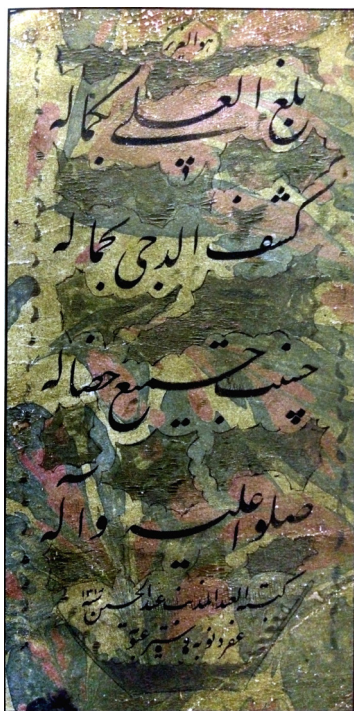 هو العزیز
بلغ العلی بکماله
کشف الدجی بجماله
حسنت جمیع خصاله
صلوا علیه وآله
کتبه العبد المذنب عبدالحسین
غفر ذنوبه